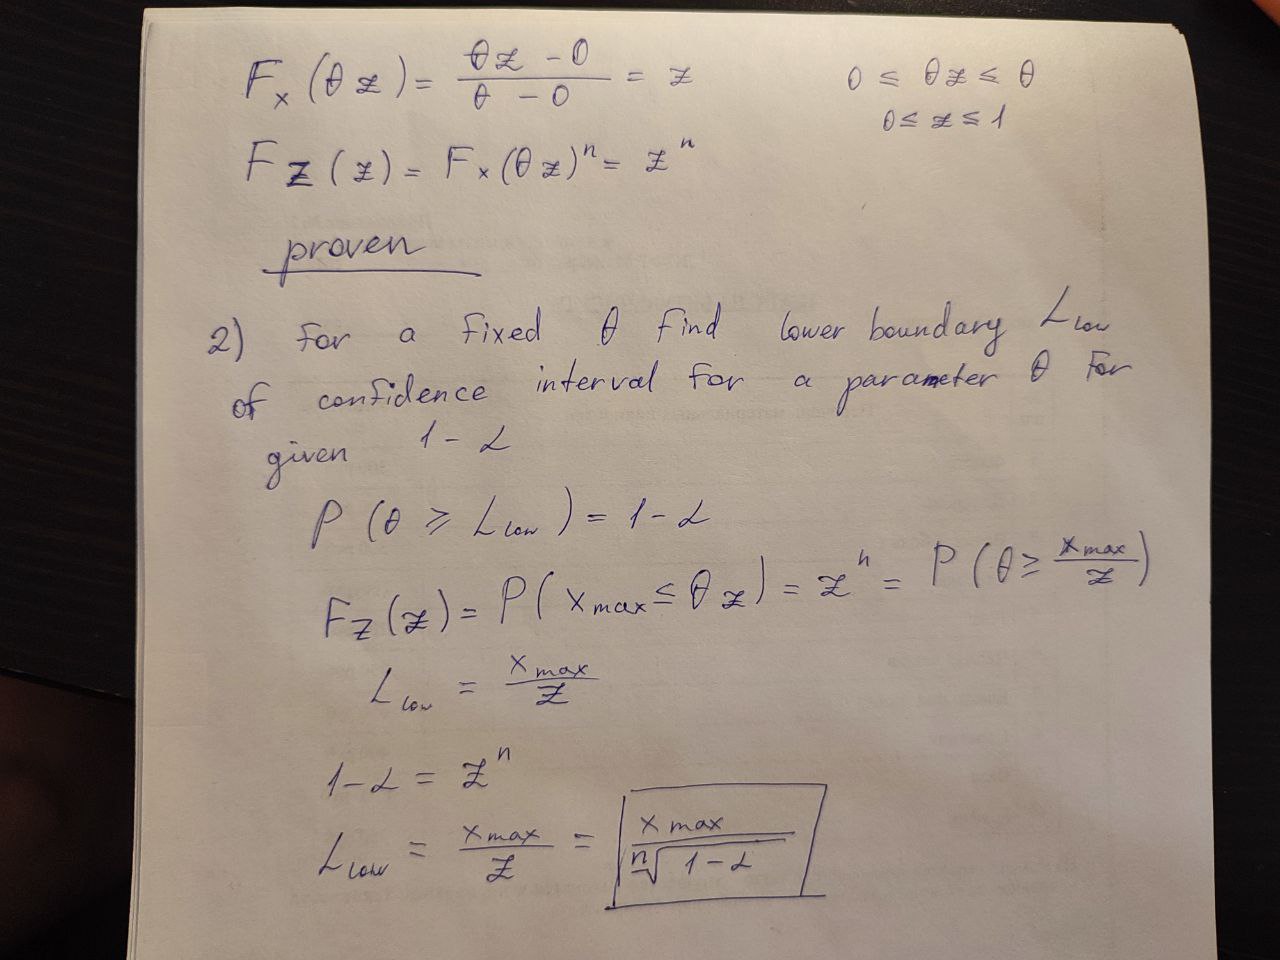 Fx (θ z) = (θz - 0)/(θ - 0) = z     0 ≤ θz ≤ θ
0 ≤ z ≤ 1
F_Z (z) = Fx (θz)^n = z^n
proven
2) For a fixed θ find lower boundary L_low
of confidence interval for a parameter θ for
given 1 - α
P (θ ≥ L_low) = 1 - α
F_Z (z) = P(x_max ≤ θ z) = z^n = P(θ ≥ x_max/z)
L_low = x_max/z
1 - α = z^n
L_low = x_max/z = x_max/ⁿ√(1 - α)